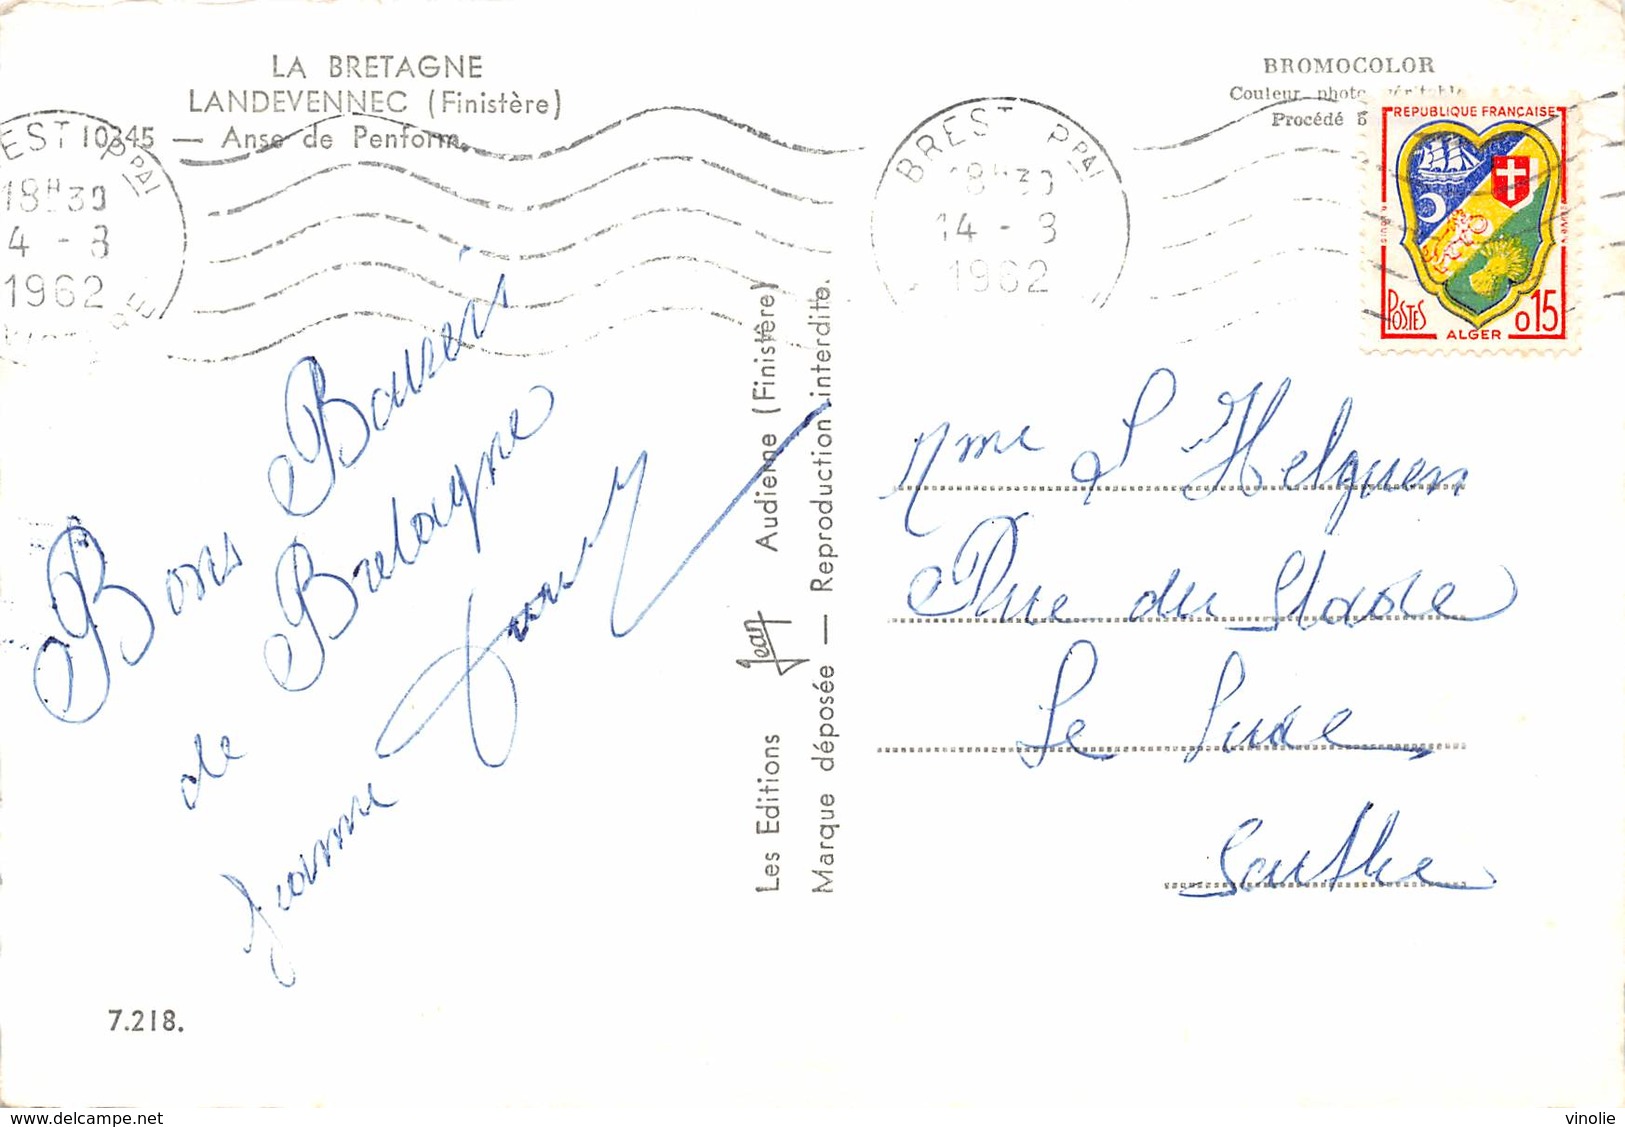 LA BRETAGNE
LANDEVENNEC (Finistère)
10345 — Anse de Penform.
BREST PPAL
18H30
14 - 8
1962
BREST PPAL
18H30
14 - 8
1962
BROMOCOLOR
Couleur photo véritable
Procédé
REPUBLIQUE FRANÇAISE
POSTES
ALGER
0,15
Bons Baisers
de Bretagne
Jeanne
Les Editions Jean Audierne (Finistère)
Marque déposée — Reproduction interdite.
Mme L Helguen
Rue du Stade
Le Lude
Sarthe
7.218.
www.delcampe.net
vinolie